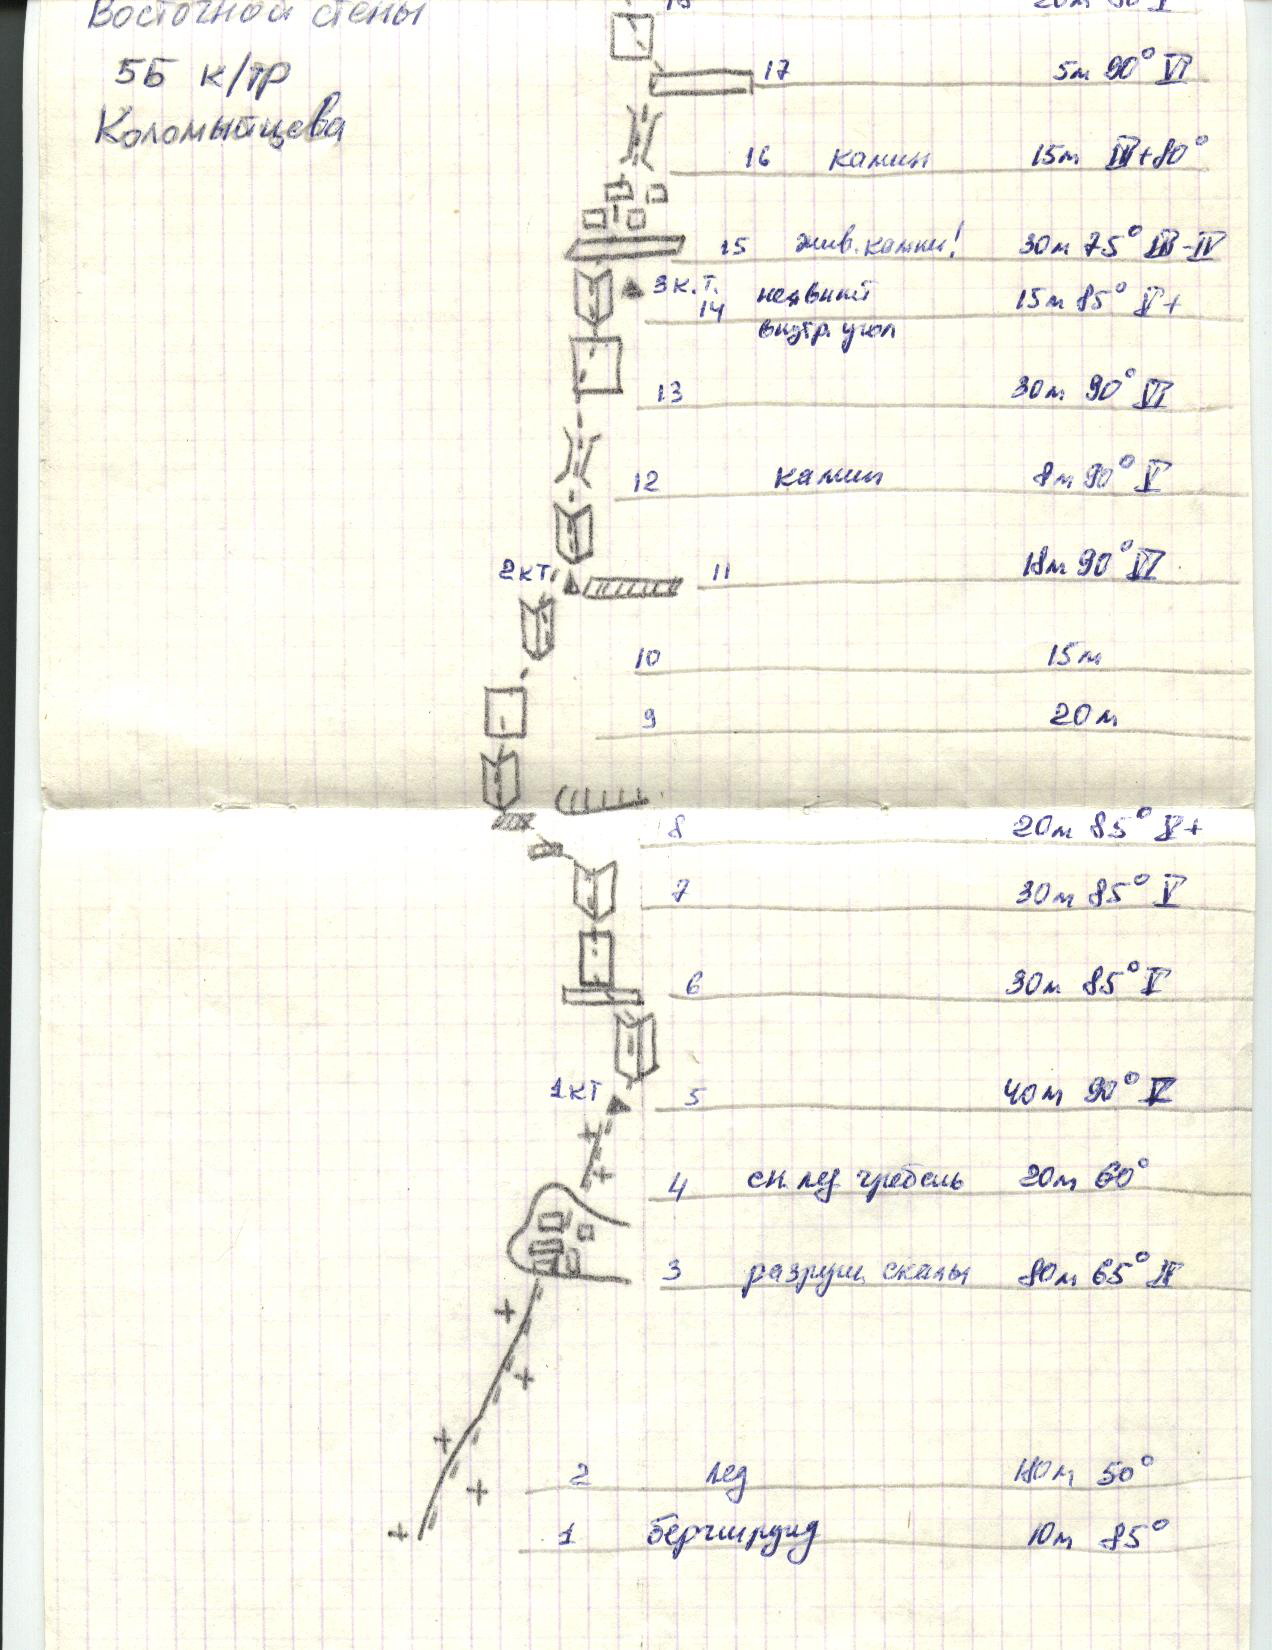 Восточной стены
5Б к/тр
Коломыйцева
18 20м 80° V
17 5м 90° VI
16 камин 15м III+ 80°
15 жив. камни! 30м 75° III-IV
3 к.т.
14 15м 85° V+
внутр. угол
13 30м 90° VI
12 камин 8м 90° V
2 кт
11 18м 90° VI
10 15м
9 20м
8 20м 85° V+
7 30м 85° V
6 30м 85° V
1 кт
5 40м 90° V
4 сн. лед гребень 20м 60°
3 разруш. скалы 80м 65° II
2 лед 180м 50°
1 бергшрунд 10м 85°